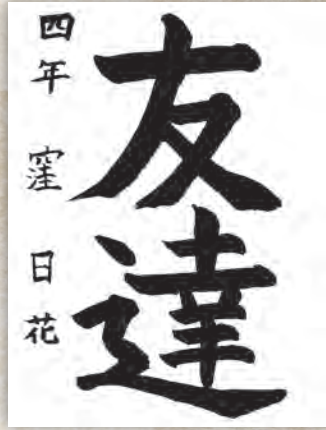 友達
四年 窪 日花